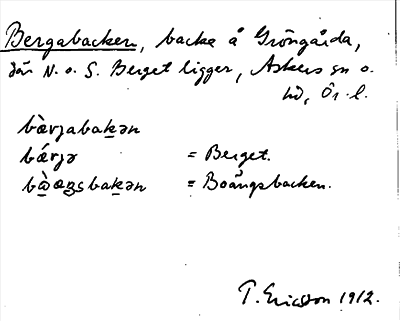 Bergabacken, backe å Gröngårda,
där N. o. S. Berget ligger, Askers sn o.
hd, Ör. l.
bàrjabakən
bárjə = Berget.
= Boängsbacken.
T. Ericsson 1912.